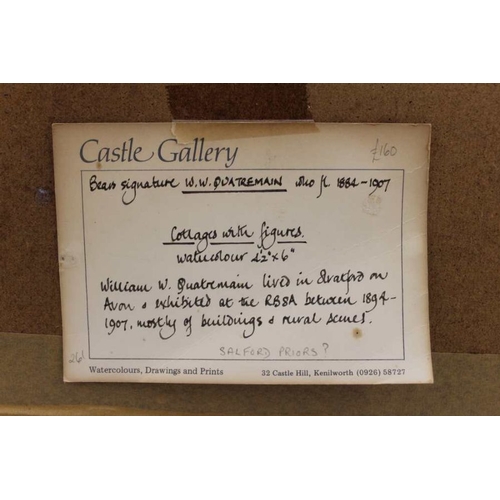 Castle Gallery
£160
Bears signature W.W. QUATREMAIN who fl. 1884-1907
Cottages with figures.
watercolour 4½" x 6"
William W. Quatremain lived in Stratford on
Avon & exhibited at the RBSA between 1894-
1907, mostly of buildings & rural scenes.
SALFORD PRIORS?
Watercolours, Drawings and Prints
32 Castle Hill, Kenilworth (0926) 58727